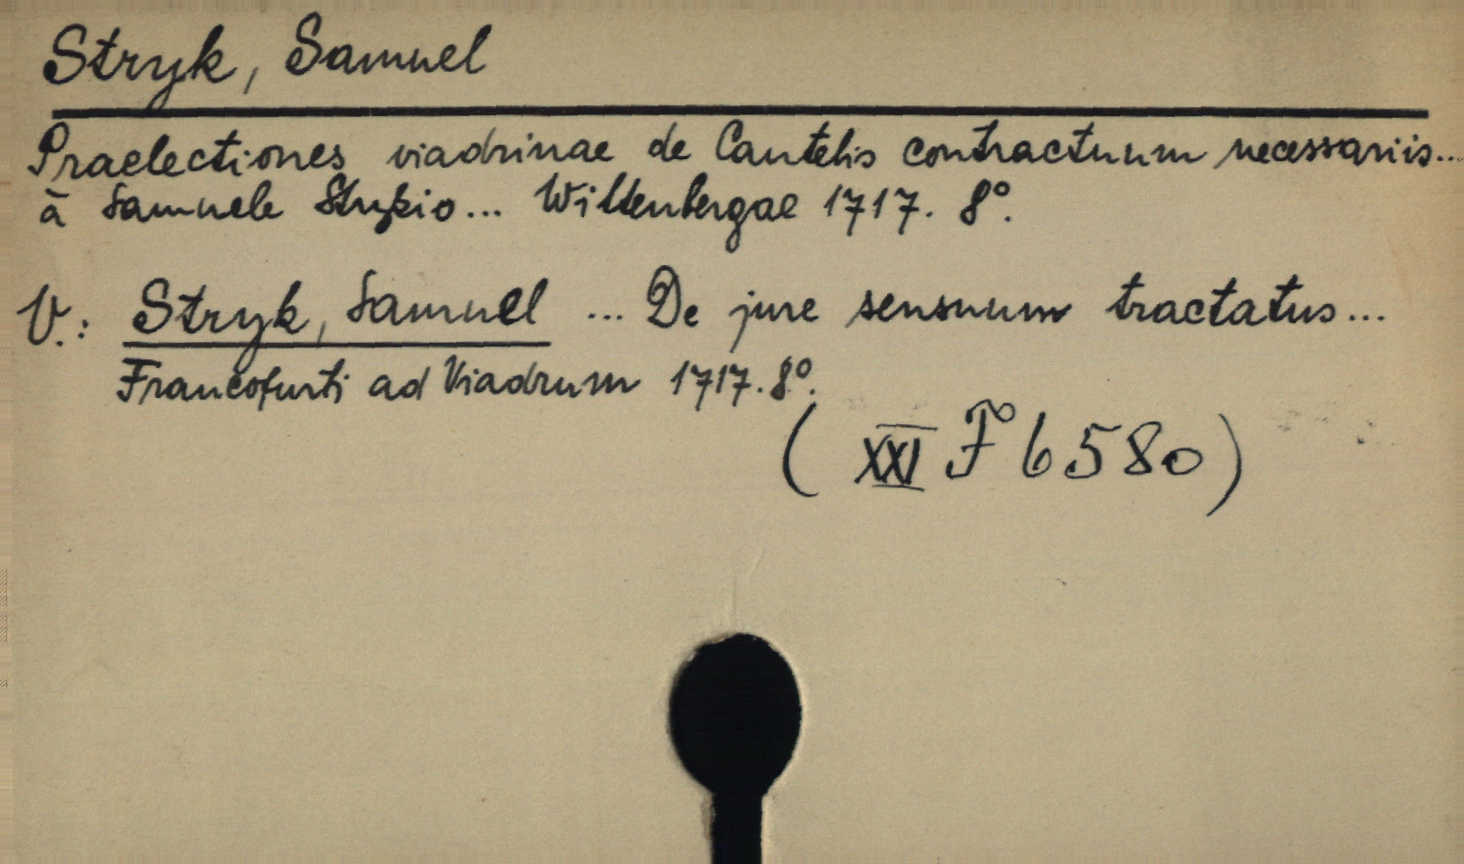 Stryk, Samuel
Praelectiones viadrinae de Cautelis contractuum necessariis...
à Samuele Strykio... Wittenbergae 1717. 8°.
V.: Stryk, Samuel ... De jure sensuum tractatus...
Francofurti ad Viadrum 1717. 8°.
( XXI F 6580)